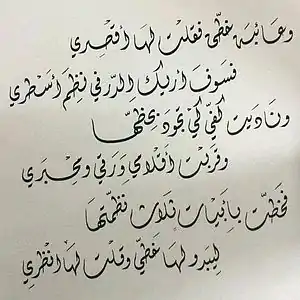 وعائبة خطّي فقلت لها أقصري
فسوف اريك الدرّ في نظم أسطري
وناديت كفّي كي يجود بخطّها
وقربت أقلامي ورقي ومحبري
فخطّت بأبيات ثلاث نظمتها
ليبدو لها خطّي وقلت لها انظري